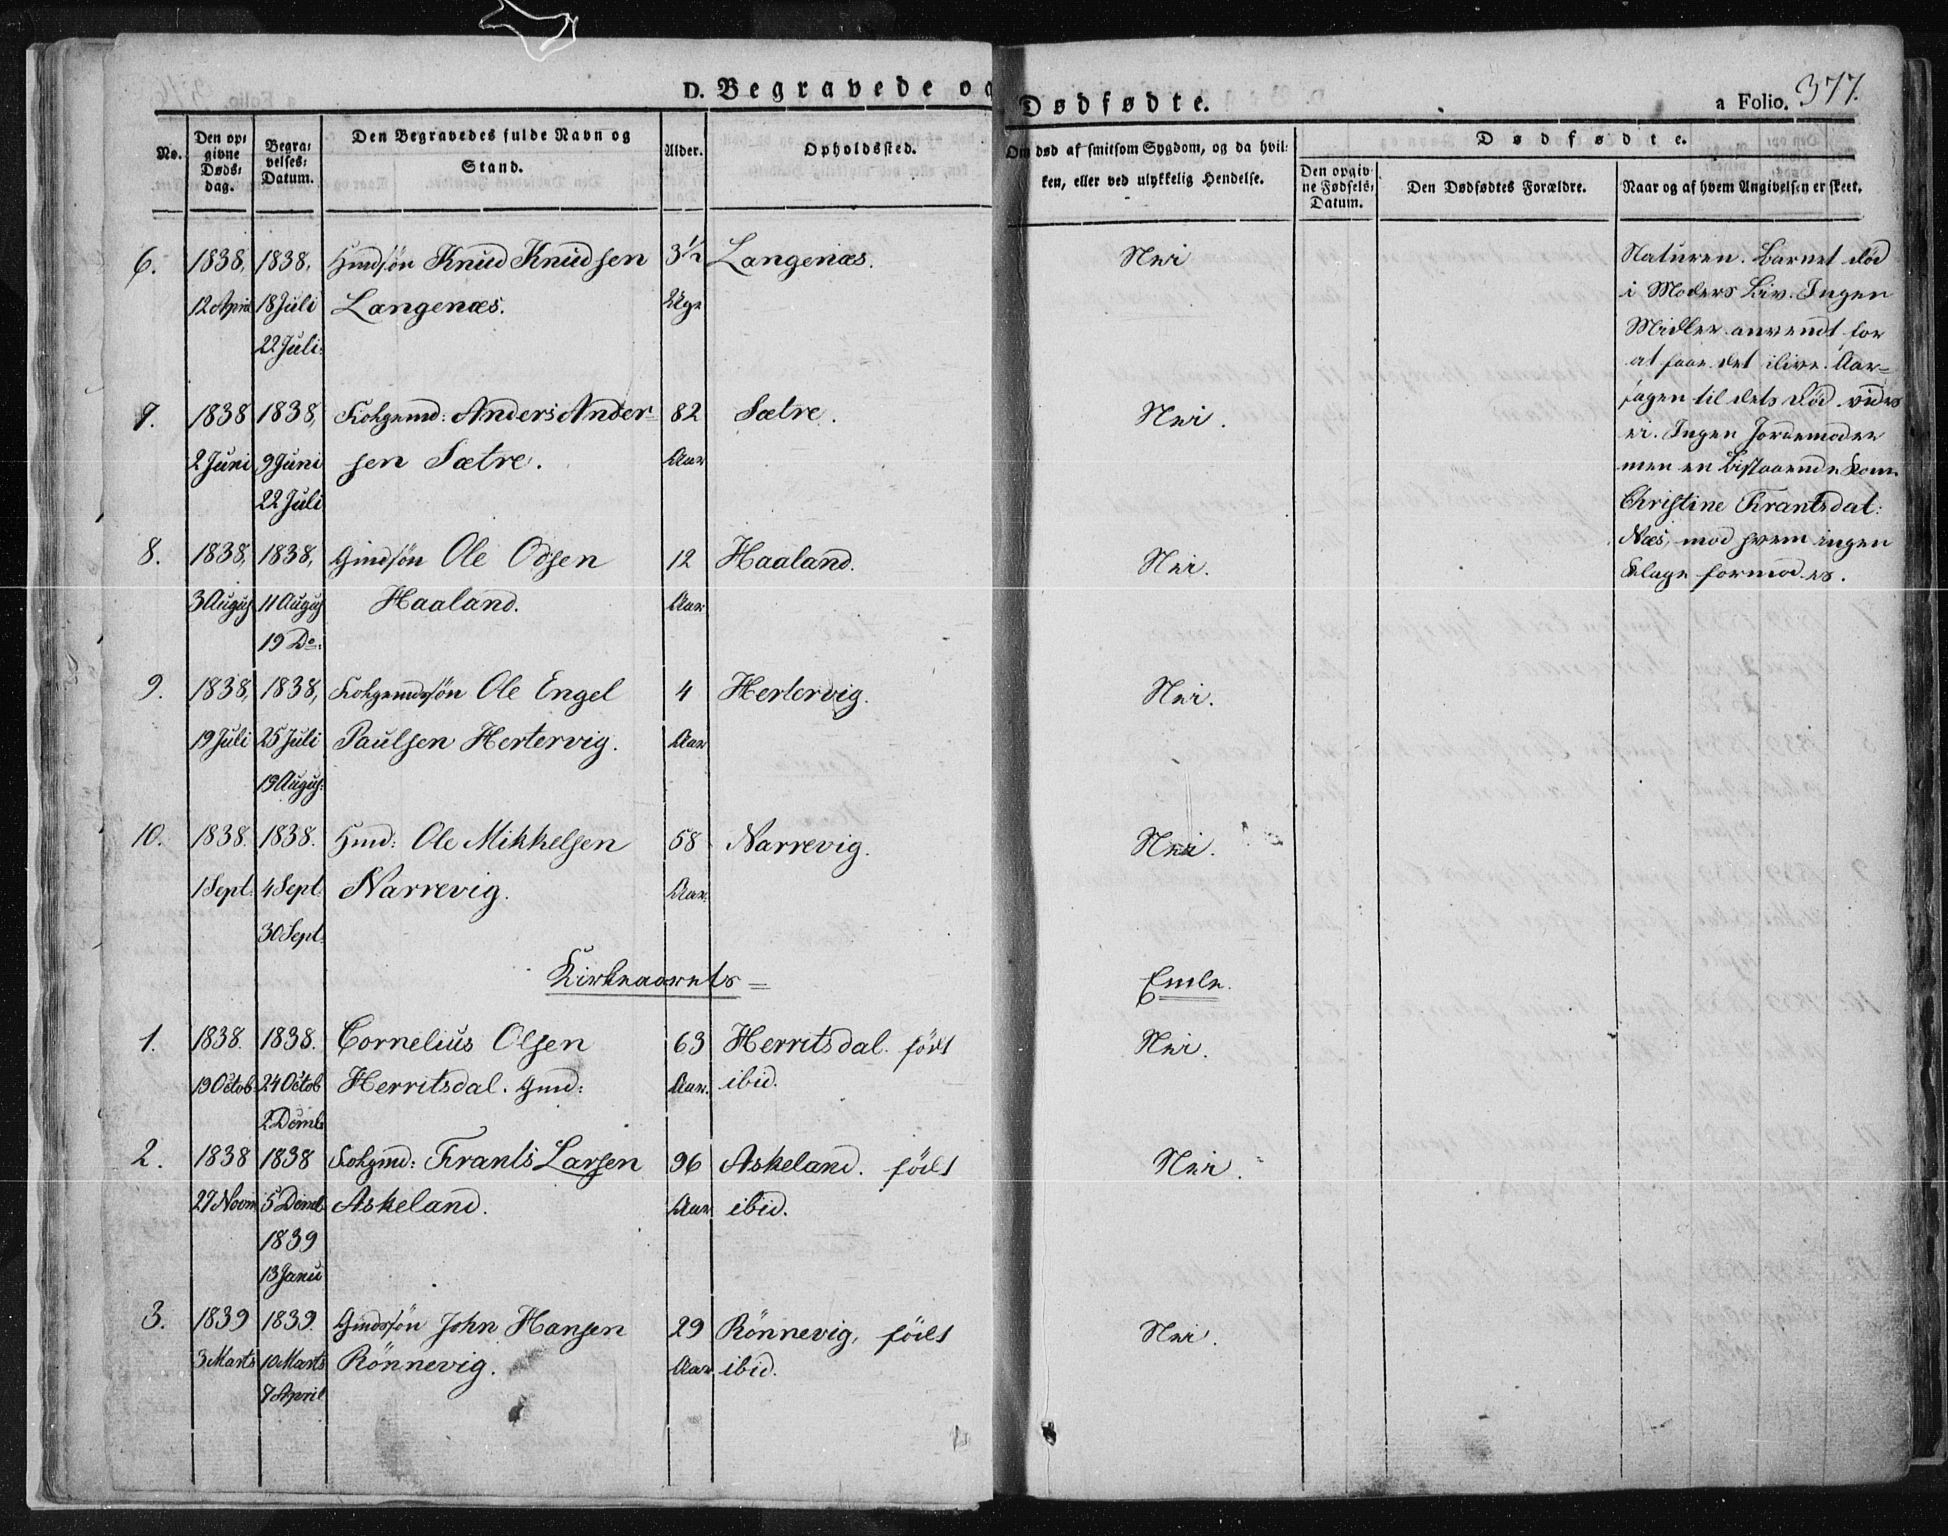 D. Begravede og Dødfødte.
a Folio. 377.
No.
Den opgivne Dødsdag.
Begravelses: Datum.
Den Begravedes fulde Navn og Stand.
Alder.
Opholdssted.
Om død af smitsom Sygdom, og da hvilken, eller ved ulykkelig Hendelse.
Dødfødte.
Den opgivne Fødsels: Datum.
Den Dødfødtes Forældre.
Naar og af hvem Angivelsen er skeet.
6. 1838, 1838, Knud Knudsen 3½ Langenæs. Nei
12 April 18 Juli Langenæs. Uge
22 Juli
7. 1838 1838, Anders Ander- 82 Sætre. Nei.
2 Juni 9 Juni sen Sætre. Aar
22 Juli
8. 1838, 1838, Gmdsøn Ole Odsen 12 Haaland. Nei.
3 August 11 August Haaland. Aar
19 Do:
9. 1838, 1838, Ole Engel 4 Hertervig. Nei.
19 Juli 25 Juli Paulsen Hertervig. Aar
19 August
10. 1838. 1838. Ole Mikkelsen 58 Narrevig. Nei.
1 Sept. 4 Sept. Narrevig. Aar.
30 Sept.
Kirkeaarets = Ende.
1. 1838. 1838. Cornelius Olsen 63 Herritsdal. født Nei.
19 Octob 24 Octob Herritsdal. Gmd: Aar. ibid.
2 Demb
2. 1838 1838 Frants Larsen 96 Askeland. født Nei.
27 Novm 5 Demb Askeland. Aar ibid.
1839
13 Janu
3. 1839 1839. Gmdssøn John Hansen 29 Rönnevig, født Nei.
3 Marts 10 Marts Rönnevig. Aar ibid.
7 April
Naturen. Barnet død
i Moders Liv. Ingen
Midler anvendt for
at faae det ilive. Aar=
sagen til dets Død vides
ei. Ingen Jordemoder
men en bistaaende Kone
Christine Frantsdat:
Næs, mod hvem ingen
Klage formodes.